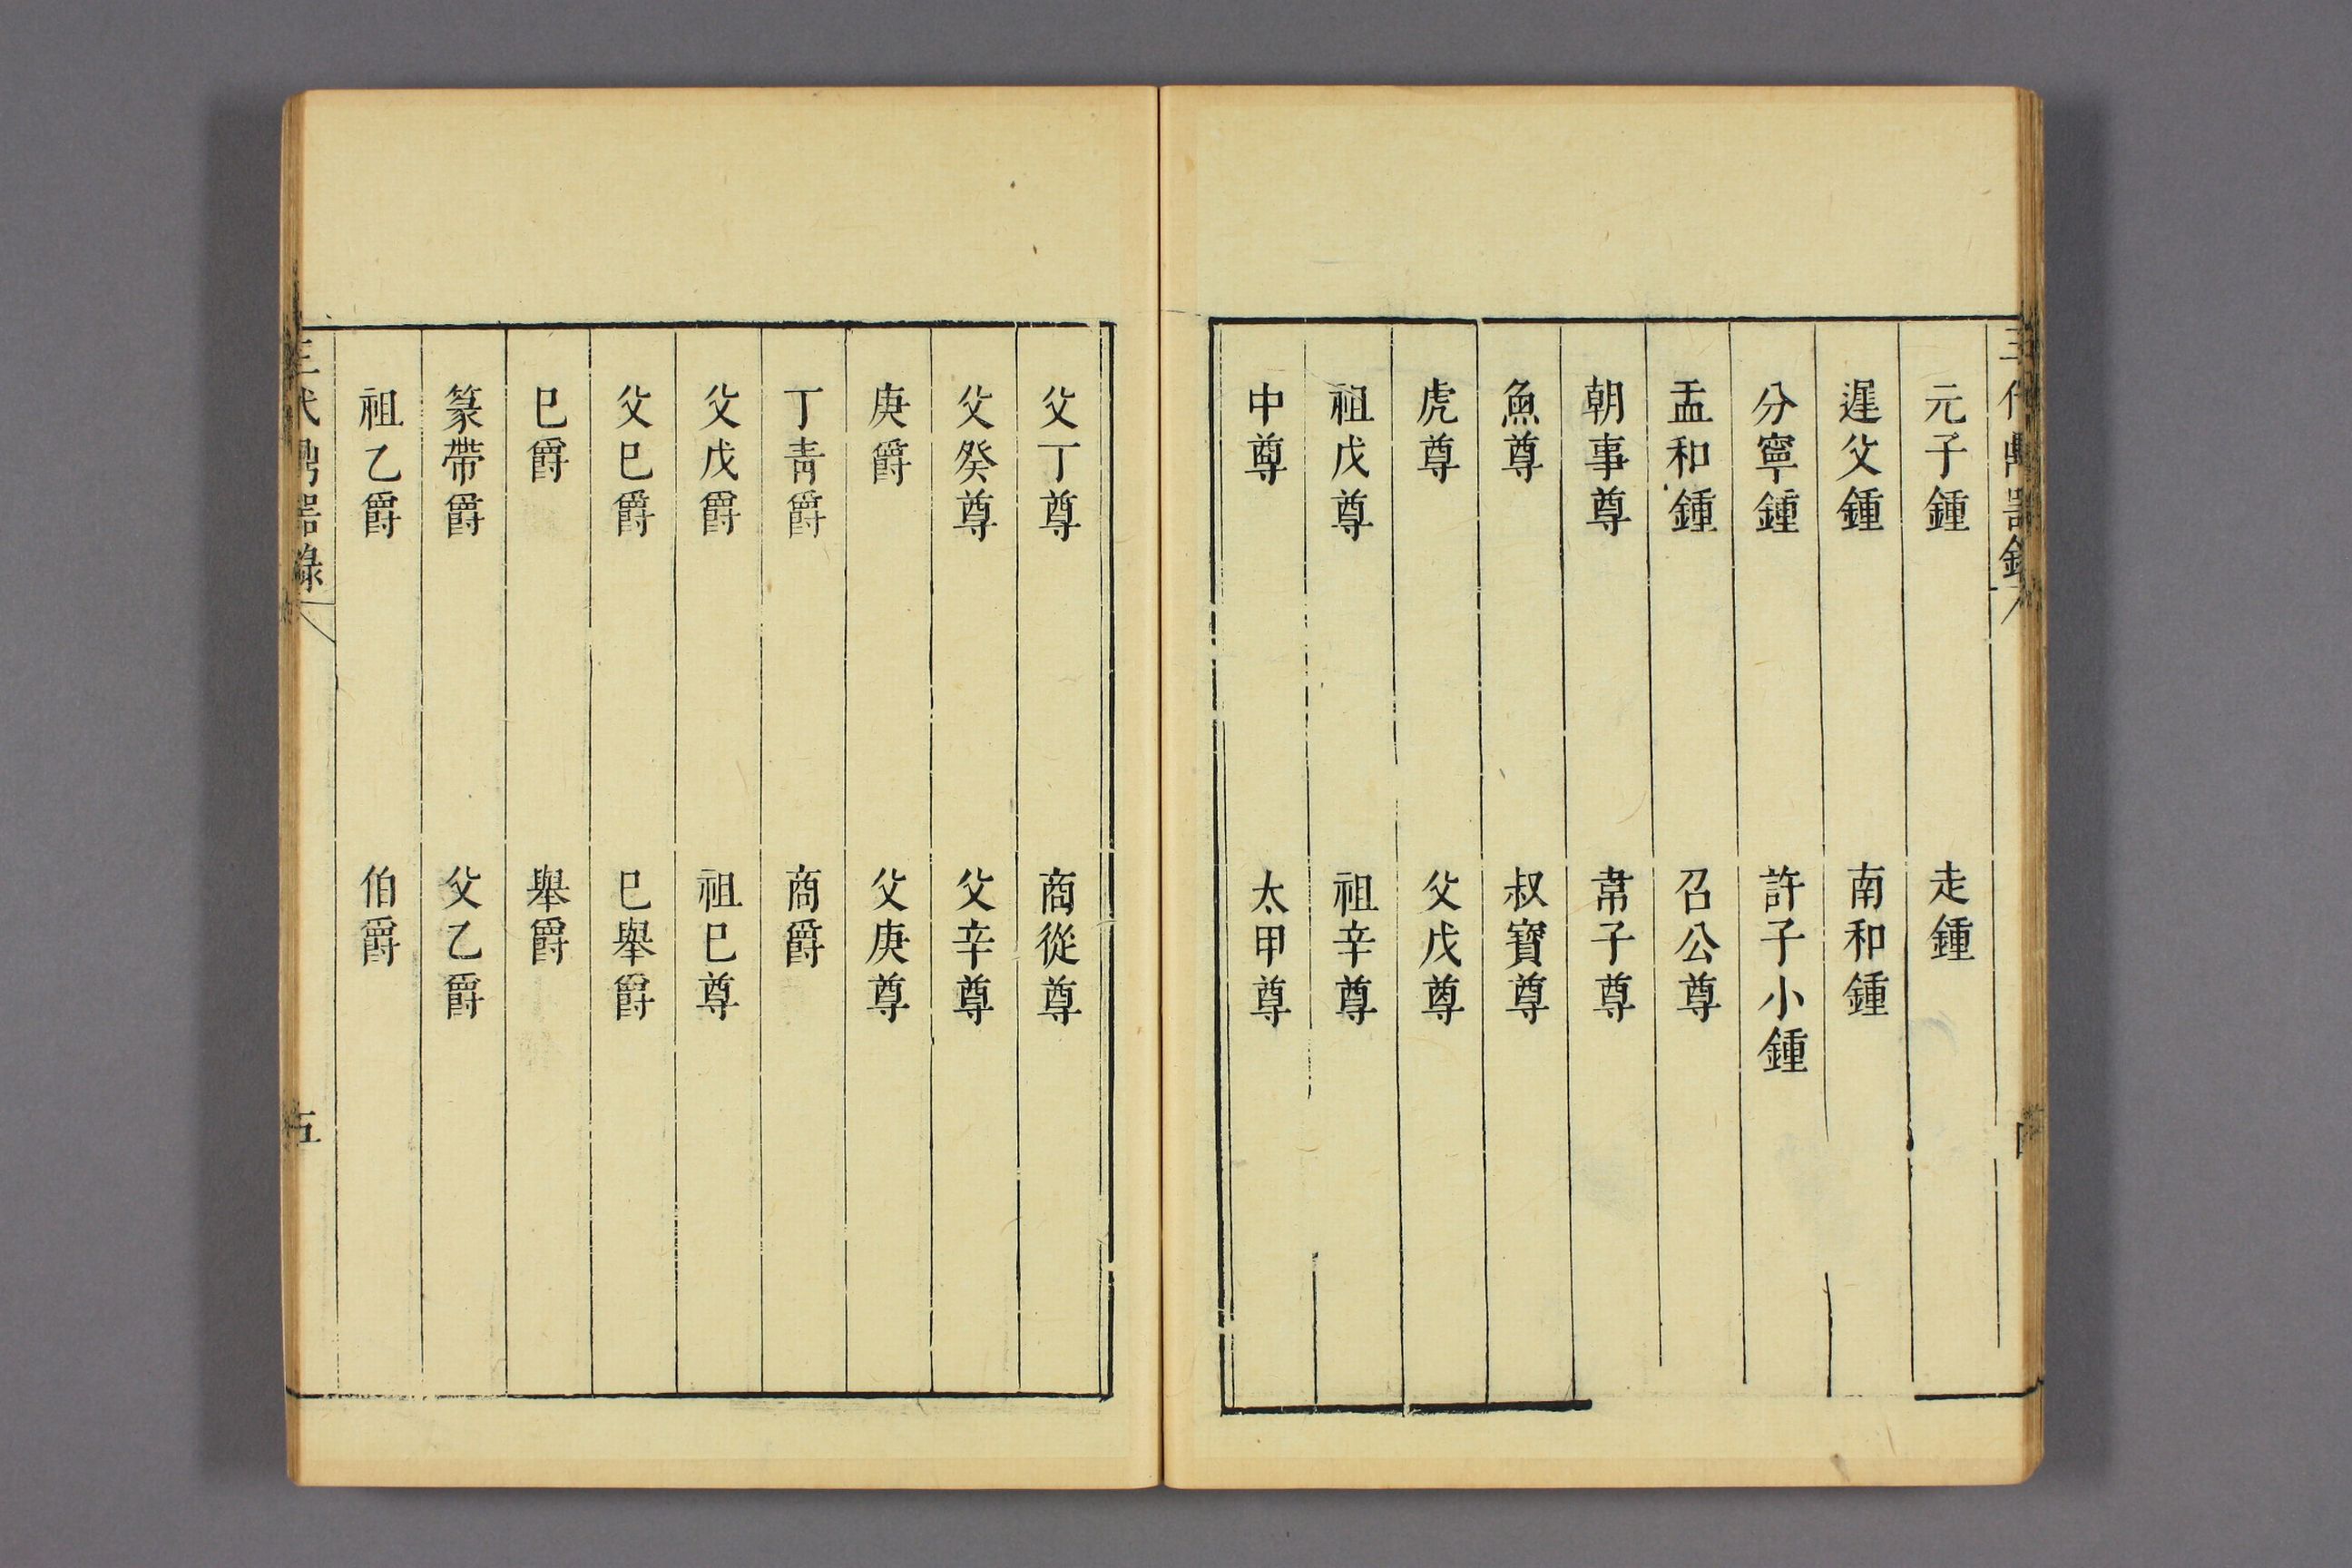 三代鼎器錄
四
元子鍾　走鍾
遲父鍾　南和鍾
分寧鍾　許子小鍾
盂和鍾　召公尊
朝事尊　韋子尊
魚尊　叔寶尊
虎尊　父戊尊
祖戊尊　祖辛尊
中尊　太甲尊
父丁尊　商從尊
父癸尊　父辛尊
庚爵　父庚尊
丁青爵　商爵
父戊爵　祖巳尊
父巳爵　巳舉爵
巳爵　舉爵
篆帶爵　父乙爵
祖乙爵　伯爵
三代鼎器錄
五